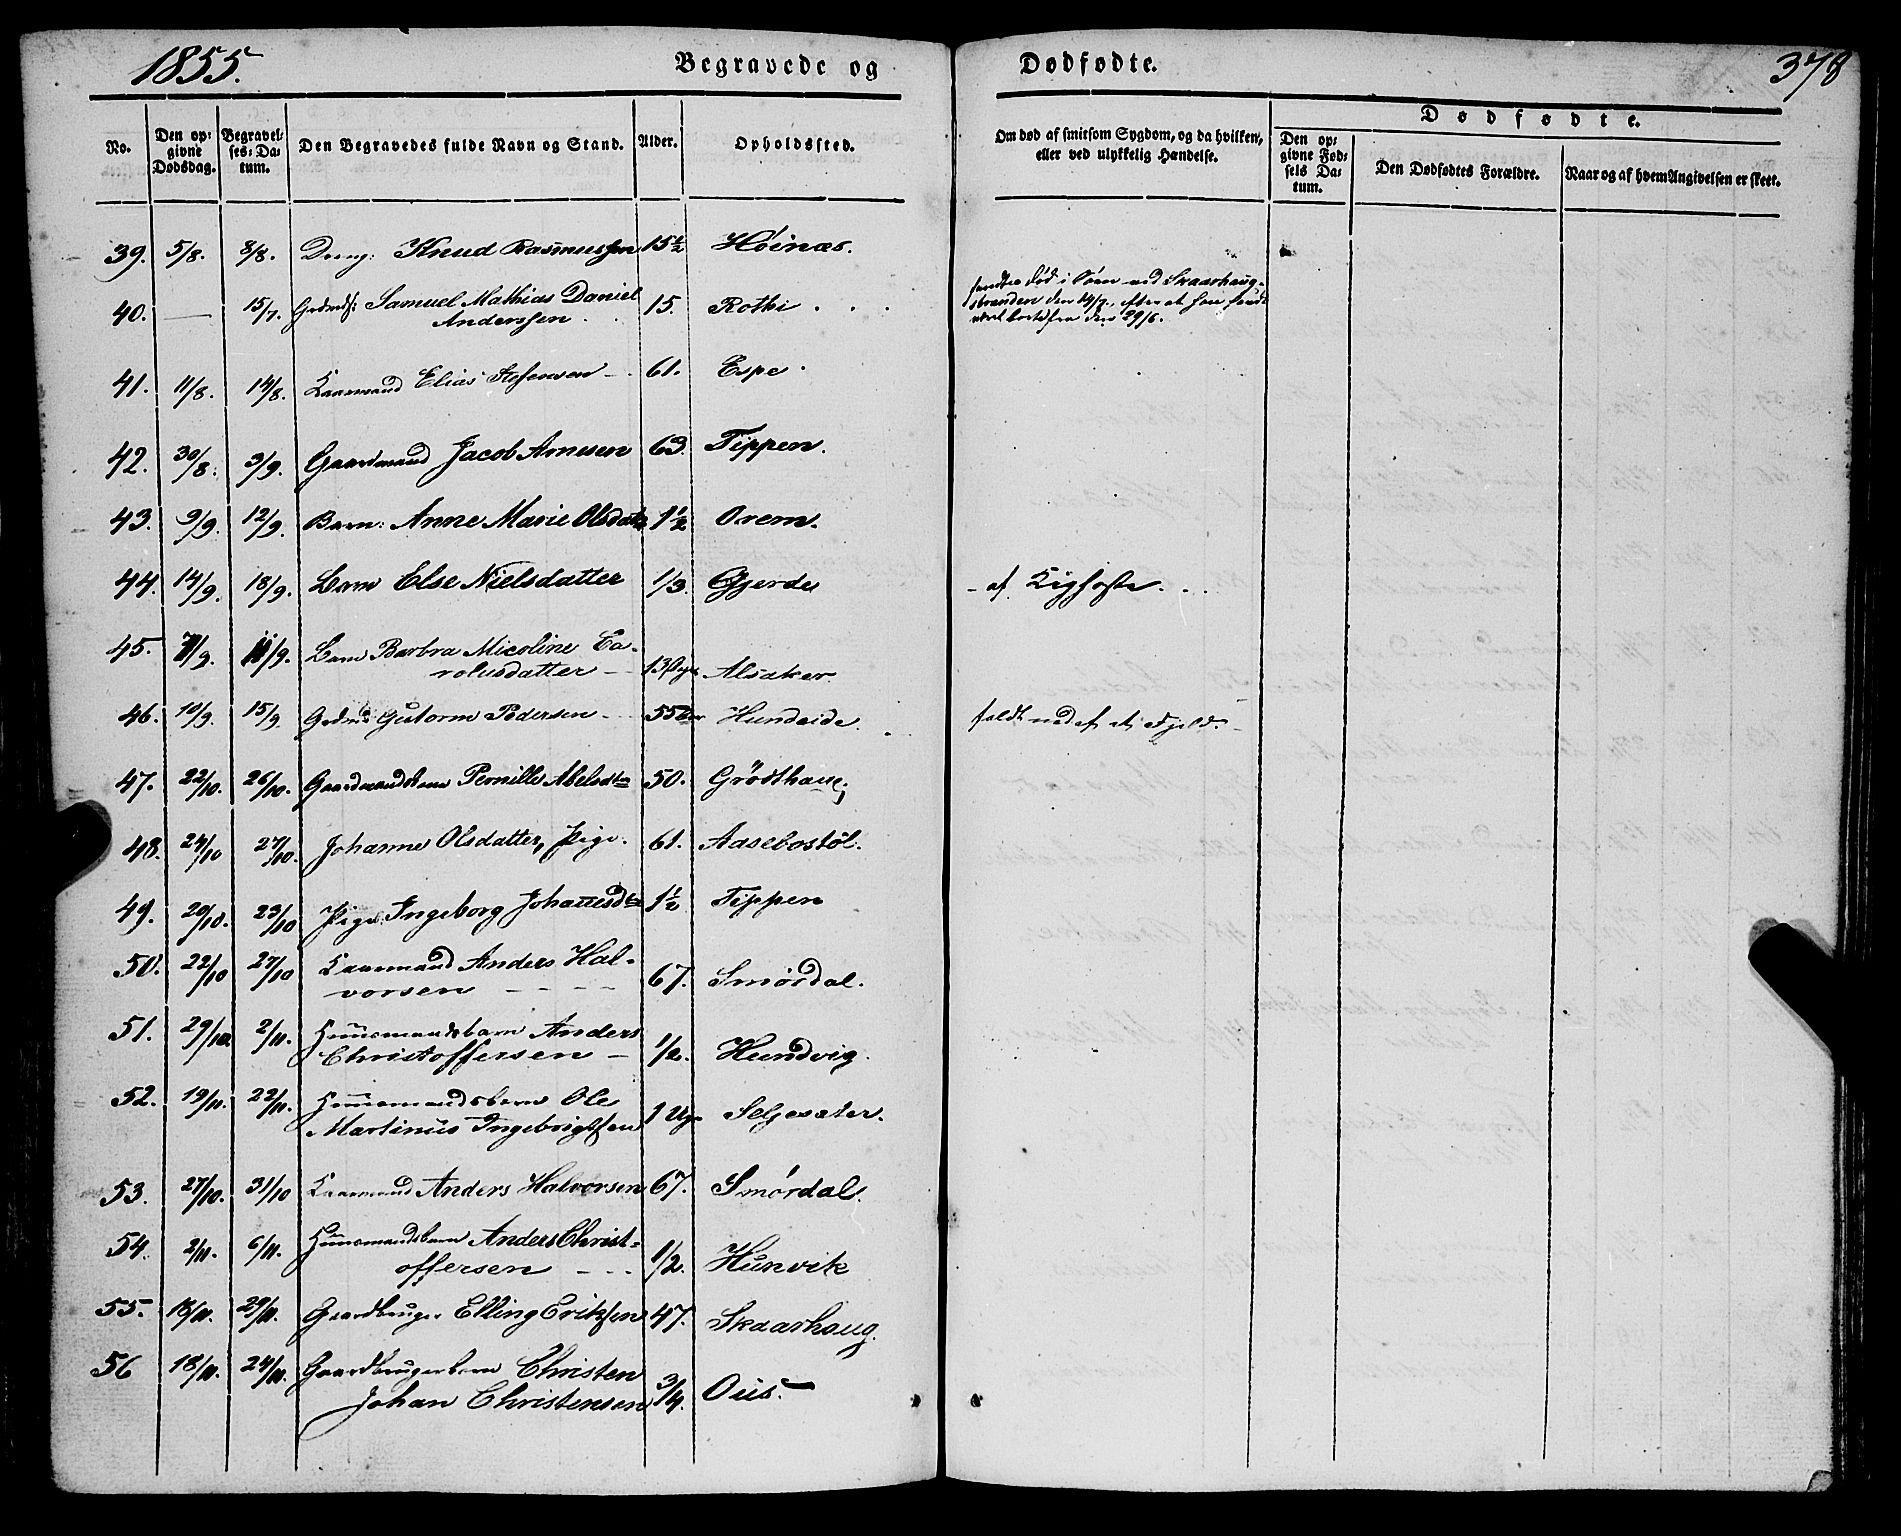 1855.
Begravede og
Dødfødte.
378
No.
Den opgivne Dødsdag.
Begravelses-Datum.
Den Begravedes fulde Navn og Stand.
Alder.
Opholdssted.
Om død af smitsom Sygdom, og da hvilken, eller ved ulykkelig Hændelse.
Dødfødte.
Den opgivne Fødsels Datum.
Den Dødfødtes Forældre.
Naar og af hvem Angivelsen er skeet.
39. 5/8. 8/8. Dreng: Knud Rasmussen 15½ Höinæs.
40. — 15/7. Samuel Mathias Daniel
Anderssen. 15. Rotki . . . fandtes død i Søen ved Skaarhaug-
stranden den 14/7, efter at han
den 29/6.
41. 11/8. 14/8. Kaarmand Elias 61. Espe.
42. 30/8. 3/9. Gaardmand Jacob Arnesen 63. Tippen.
43. 9/9. 12/9. Barn: Anne Marie Olsdatr 1½ Orem.
44. 14/9. 18/9. Barn Else Nielsdatter 1/3. Gjerde - af Kighoste. . .
45. 7/9. 11/9. Barn Barbra Micoline Ca-
rolusdatter — 13 Dage Alsaker.
46. 10/9. 15/9. Gutorm Pedersen 55 Hundeide. faldt ned af et
47. 22/10. 26/10. Pernille Abelsdtr 50. Grösthaug
48. 24/10 27/10. Johanne Olsdatter, Pige. 61. Aasebostöl.
49. 20/10. 23/10 Pige: Ingeborg Johannesdtr 1½ Tippen
50. 22/10 27/10 Kaarmand Anders Hal-
vorsen — — — 67. Smördal.
51. 29/10. 2/11. Huusmandsbarn Anders
Christoffersen — 1/2. Hundvig.
52. 19/11. 22/11. Huusmandsbarn Ole
Martinus Ingebrigtsen 1 Uge Selgesæter.
53. 27/10. 31/10 Kaarmand Anders Halvorsen 67. Smördal.
54. 2/11. 6/11. Huusmandsbarn Anders Christ-
offersen — — — 1/2. Hunvik
55. 18/11. 29/11. Gaardbruger Elling Eriksen 47. Skaarhaug.
56 18/11. 24/11. Gaardbrugerbarn Christen
Johan Christensen 3/4. Ous. —